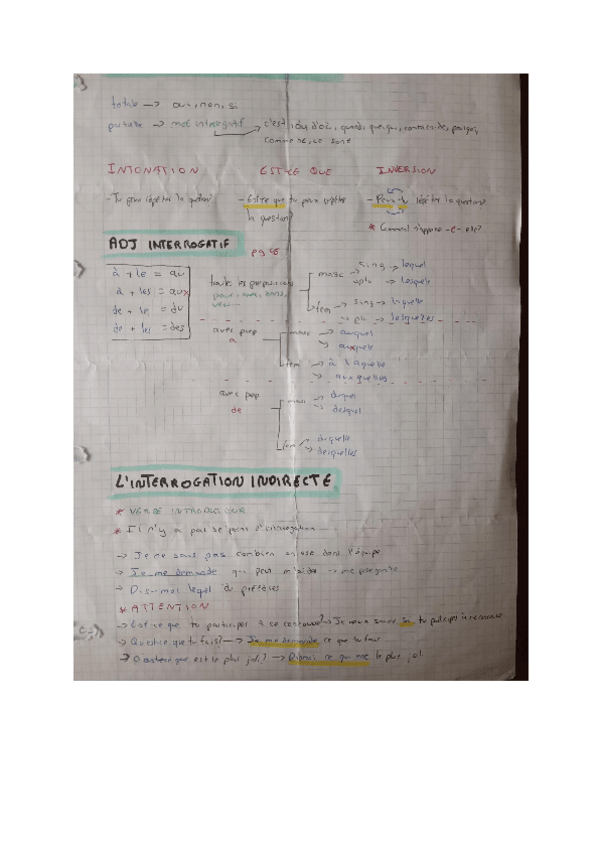 totale → oui, non, si
→ mot interrogatif → c'est, où, d'où, quand,
comment, ce sont
INTONATION EST-CE QUE INVERSION
- Tu peux répéter la question? - Est-ce que tu peux répéter - Peux-tu répéter la question?
la question?
* Comment s'appelle-t-elle?
ADJ INTERROGATIF pg
à + le = au
à + les = aux
de + le = du
de + les = des
toute les prepositions
pour, avec, dans,
masc → sing → lequel
→ lesquels
fem → sing → laquelle
→ plu → lesquelles
avec prep
a
masc → auquel
→ auxquels
fem → à laquelle
→ auxquelles
avec prep
de
masc → duquel
→ desquel
fem → duquelle
→ desquelles
L'INTERROGATION INDIRECTE
* VERBE INTRODUCTEUR
* Il n'y a pas de point d'interrogation
→ Je ne sais pas combien on est dans l'équipe
→ Je me demande qui peut m'aider
→ Dis-moi lequel tu préfères
* ATTENTION
→ Est ce que tu participes à ce concours? → Je veux savoir si tu participes
→ Qu'est ce que tu fais? → Je me demande ce que tu fais
→ est le plus joli? → Dis moi ce qui est le plus joli